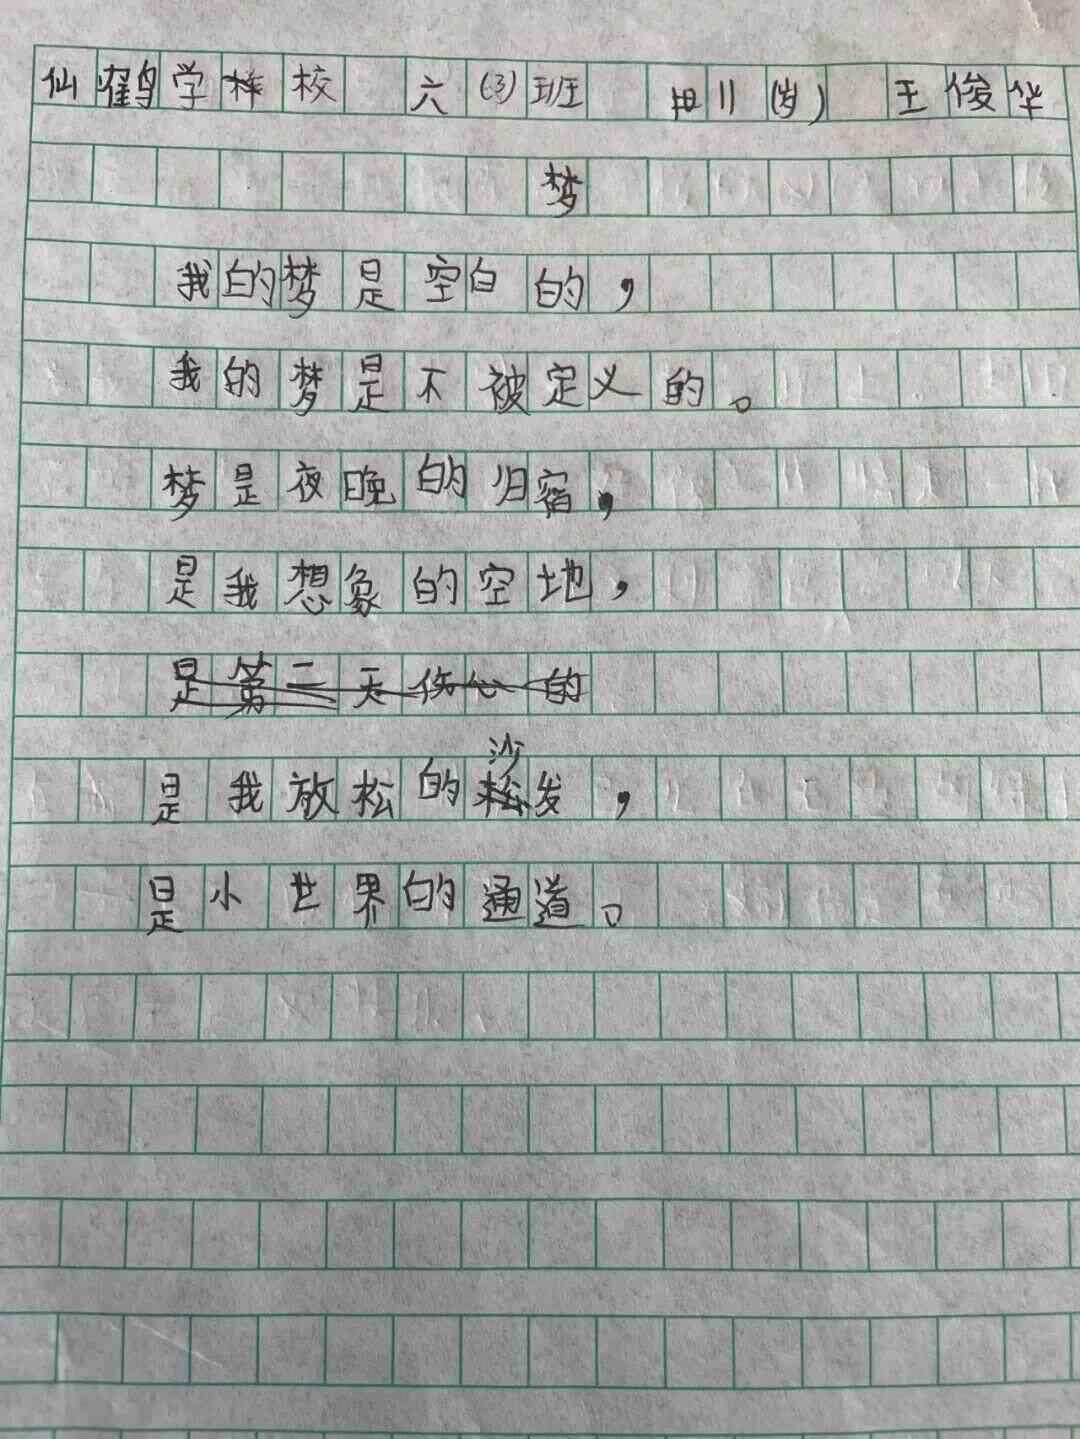 仙鹤学校 六(3)班 11(岁) 王俊华
梦
我的梦是空白的，
我的梦是不被定义的。
梦是夜晚的归宿，
是我想象的空地，
是第二天伤心的
是我放松的沙发，
是小世界的通道。